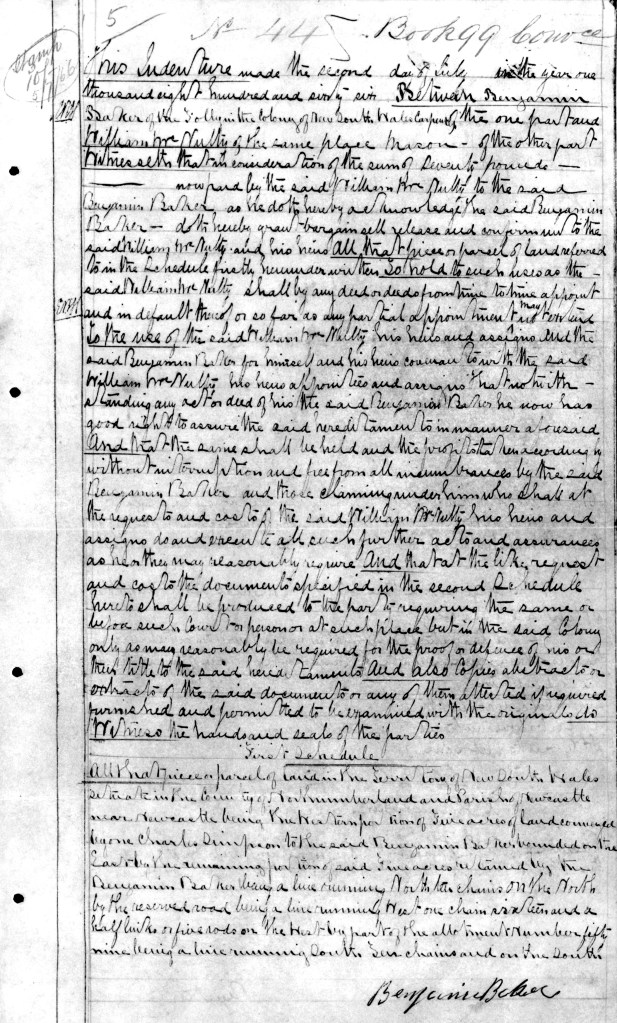 5
No 445 Book 99 Convce
This Indenture made the second day of July in the year one
thousand eight hundred and sixty six Between Benjamin
Baker of the Folly in the Colony of New South Wales Carpenter of the one part and
William McNulty of the same place Mason - of the other part
Witnesseth that in consideration of the sum of Seventy pounds -
now paid by the said William McNulty to the said
Benjamin Baker as he doth hereby acknowledge he said Benjamin
Baker - doth hereby grant bargain sell release and confirm unto the
said William McNulty and his heirs All that piece or parcel of land referred
to in the Schedule firstly hereunder written To hold to such uses as the -
said William McNulty shall by any deed or deeds from time to time appoint
and in default thereof or so far as any partial appointment may not extend
To the use of the said William McNulty his heirs and assigns And the
said Benjamin Baker for himself and his heirs covenants with the said
William McNulty his heirs appointees and assigns That notwith -
standing any act or deed of his the said Benjamin Baker he now has
good right to assure the said hereditaments in manner aforesaid
And that the same shall be held and the profits taken accordingly
without interruption and free from all incumbrances by the said
Benjamin Baker and those claiming under him who shall at
the requests and costs of the said William McNulty his heirs and
assigns do and execute all such further acts and assurances
as he or they may reasonably require And that at the like request
and cost the documents specified in the second Schedule
hereto shall be produced to the party requiring the same or
before such Court or person or at such place but in the said Colony
only as may reasonably be required for the proof or defence of his or
their title to the said hereditaments And also Copies abstracts or
extracts of the said documents or any of them attested if required
furnished and permitted to be examined with the originals In
Witness the hands and seals of the parties
First Schedule
All that piece or parcel of land in the Territory of New South Wales
situate in the County of Northumberland and Parish of Newcastle
near Newcastle being the Western portion of Five acres of land conveyed
by one Charles Simpson to the said Benjamin Baker bounded on the
East by the remaining portion of said Five acres retained by the
Benjamin Baker being a line running North ten chains on the North
by the reserved road being a line running West one chain sixteen and a
half links or five rods on the West by part of the allotment Number fifty
nine being a line running South Ten chains and on the South
Benjamin Baker